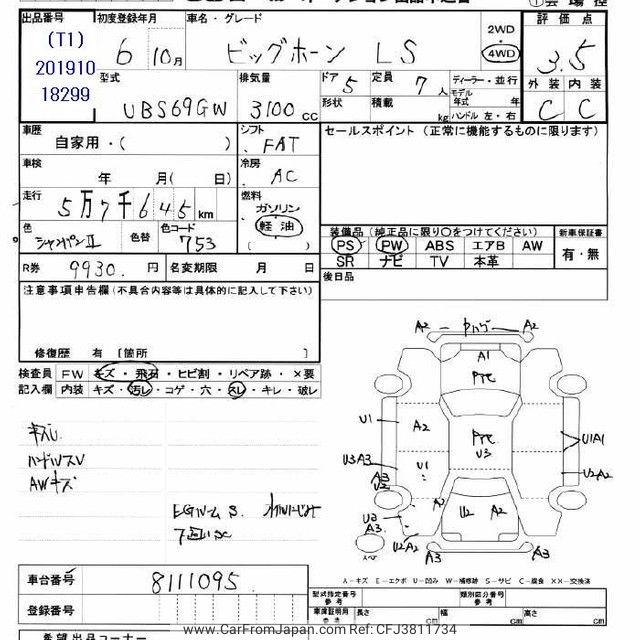 出品番号
(T1)
201910
18299
初度登録年月
6 10月
車名・グレード
ビッグホーン LS
2WD
4WD
評価点
3.5
外装 内装
C C
型式
UBS69GW
排気量
3100 cc
ドア 5
形状
定員 7 人
積載 kg
ディーラー・並行
モデル年式 年式
ハンドル 左・右
車歴
自家用・( )
シフト
FAT
セールスポイント (正常に機能するものに限ります)
車検
年 月(日)
冷房
AC
走行
5万7千645 km
燃料
ガソリン
軽油
( )
色
シャンパンII
色替
色コード
753
装備品 (純正品に限り○をつけてください)
PS PW ABS エアB AW
SR ナビ TV 本革
新車保証書
有・無
R券 9930. 円
名変期限 月 日
後日品
注意事項申告欄(不具合内容等は具体的に記入して下さい)
修復歴 有 [箇所 ]
検査員記入欄
FW キズ・飛石・ヒビ割・リペア跡・×要
内装 キズ・汚レ・コゲ・穴・スレ・キレ・破レ
ハンドルスレ
AWキズ
EGルームS.
A2 A2
A1
U1 A2
U1
U3A3
A3
U2
U3
A3.
U2A2
A3
U3
U2 A2
U1A1
U2A2
A3
A3
A-キズ E-エクボ U-凹ミ W-補修跡 S-サビ C-腐食 XX-交換済
車台番号
8111095
登録番号
型式指定番号 参考
類別区分番号 参考
車庫証明用 参考
長さ cm
幅 cm
高さ cm
希望出品コーナー
www.CarFromJapan.com Ref: CFJ3811734